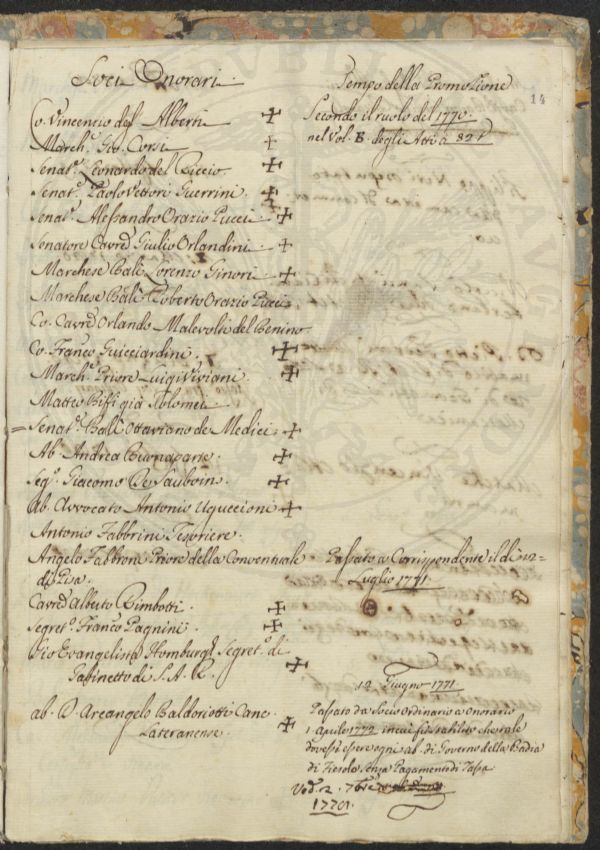 Soci Onorari
Tempo della Promozione
14
Co. Vincenzio degl Alberti
Secondo il ruolo del 1770.
March.e Gio. Corsi
nel Vol. B. degli Atti a 82 t.
Senat.e Leonardo del Riccio.
Senat.e Paolo Vettori Guerrini.
Senat.e Alessandro Orazio Pucci
Senatore Cav.re Giulio Orlandini.
Marchese Balì Lorenzo Ginori
Marchese Balì Roberto Orazio Pucci
Co. Cav.re Orlando Malevolti del Benino
Co. Franc.o Guicciardini
March.e Priore Luigi Viviani
Matteo Biffi già Tolomei
Senat.e Balì Ottaviano de Medici
Ab. Andrea Buonaparte
Seg.o Giacomo De Sauboin
Ab. Avvocato Antonio Uguccioni
Antonio Fabbrini Tesoriere
Angelo Fabbroni Priore della Conventuale
di Pisa.
Passato a Corrispondente il dì 12
Luglio 1771
Cav.re Alberto Rimbotti
Segret.o Franc.o Pagnini
Gio Evangelista Hombourgh Segret.o di
Gabinetto di S. A. R.
12 Giugno 1771.
ab. D. Arcangelo Baldoriotti Canc.
Lateranense
Passato da Socio Ordinario a Onorario
1 Aprile 1772 in cui fu stabilito che tale
dovesse essere ogni ab. di Governo della Badia
di Fiesole senza Pagamento di Tassa
Ved. 2. 7bre
1770.